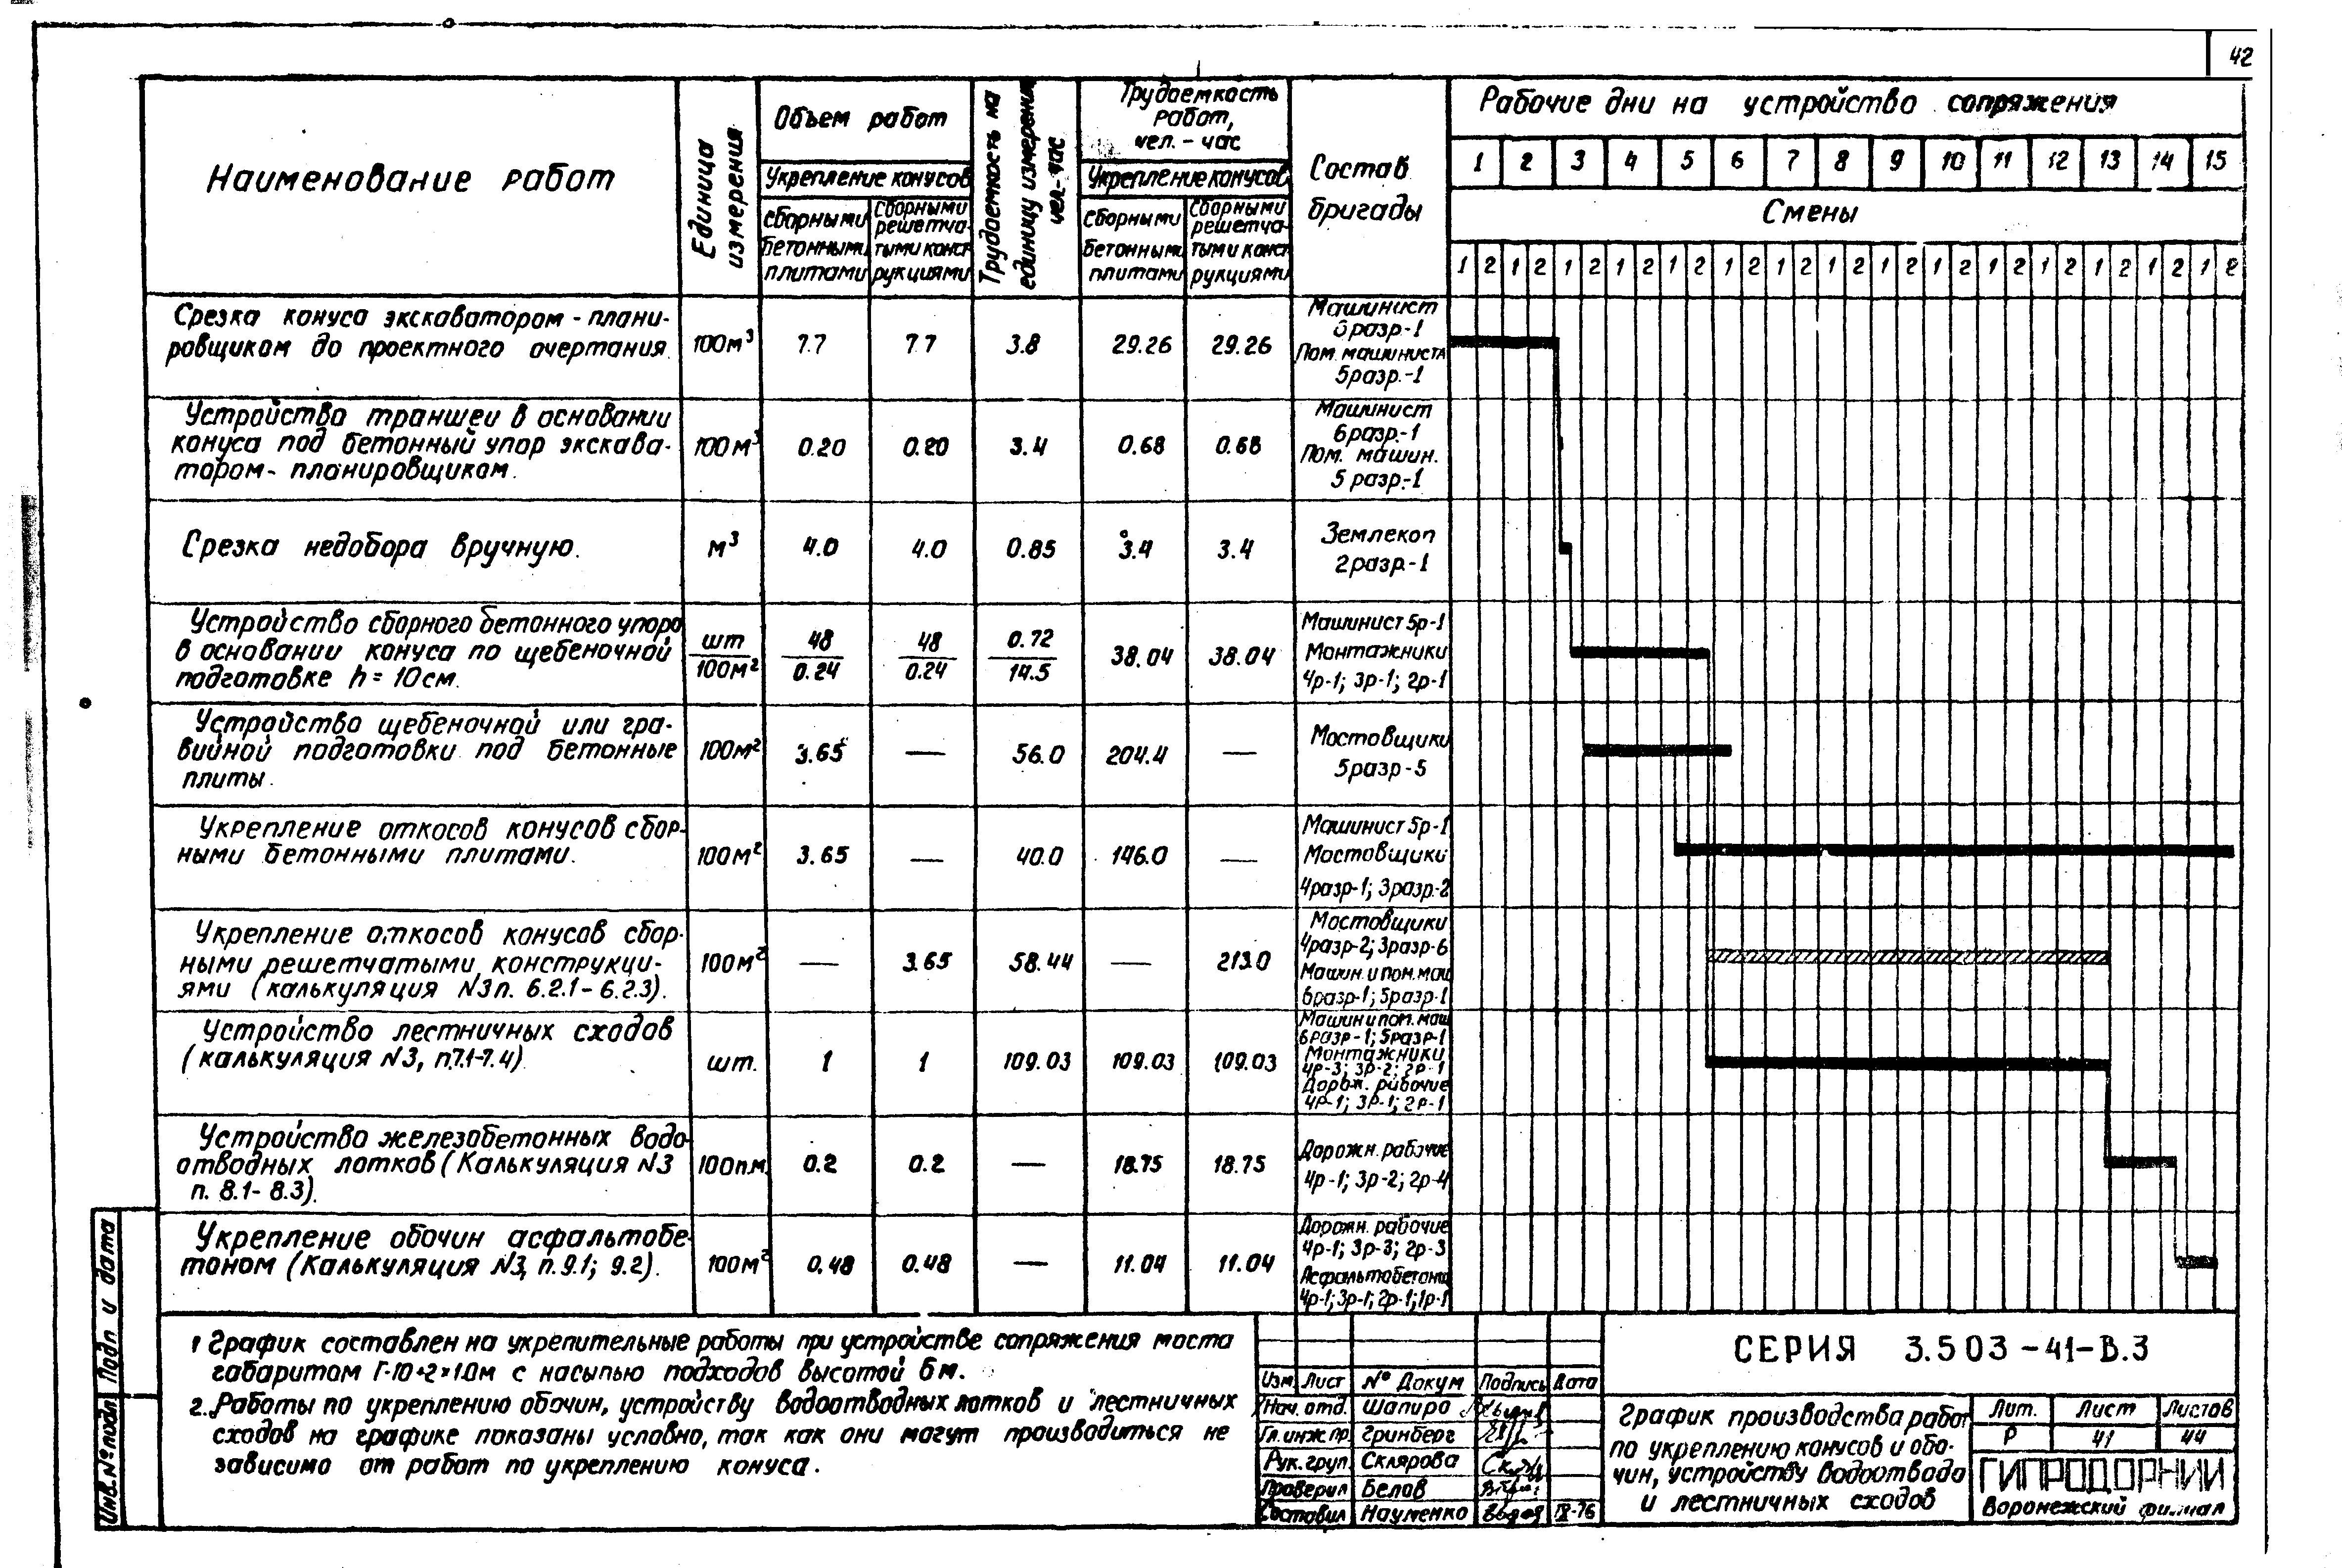 42
Наименование работ
Единица измерения
Объем работ
Укрепление конусов
сборными бетонными плитами
сборными решетча-
тыми конст
рукциями
Трудоемкость на единицу измерения чел.-час
Трудоемкость
работ,
чел.-час
Укрепление конусов
сборными бетонными плитами
сборными решетча-
тыми конст
рукциями
Состав
бригады
Рабочие дни на устройство сопряжения
1 2 3 4 5 6 7 8 9 10 11 12 13 14 15
Смены
1 2 1 2 1 2 1 2 1 2 1 2 1 2 1 2 1 2 1 2 1 2 1 2 1 2 1 2 1 2
Срезка конуса экскаватором-плани-
ровщиком до проектного очертания.
100м³ 7.7 7.7 3.8 29.26 29.26
Машинист
6разр-1
Пом. машиниста
5разр.-1
Устройство траншеи в основании
конуса под бетонный упор экскава-
тором-планировщиком.
100м³ 0.20 0.20 3.4 0.68 0.68
Машинист
6разр.-1
Пом. машин.
5 разр.-1
Срезка недобора вручную.
м³ 4.0 4.0 0.85 3.4 3.4
Землекоп
2разр.-1
Устройство сборного бетонного упора
в основании конуса по щебеночной
подготовке h=10см.
шт 48 48 0.72
100м² 0.24 0.24 14.5
38.04 38.04
Машинист 5р-1
Монтажники
4р-1; 3р-1; 2р-1
Устройство щебеночной или гра-
вийной подготовки под бетонные
плиты.
100м² 3.65 — 56.0 204.4 —
Мостовщики
5разр-5
Укрепление откосов конусов сбор-
ными бетонными плитами.
100м² 3.65 — 40.0 146.0 —
Машинист 5р-1
Мостовщики
4разр-1; 3разр-2
Укрепление откосов конусов сбор-
ными решетчатыми конструкци-
ями (калькуляция N3п. 6.2.1-6.2.3).
100м² — 3.65 58.44 — 213.0
Мостовщики
4разр-2; 3разр-6
Машин. и пом. маш
6разр-1; 5разр-1
Устройство лестничных сходов
(калькуляция N3, п.7.1-7.4)
шт. 1 1 109.03 109.03 109.03
Машин и пом. маш
6разр-1; 5разр-1
Монтажники
4р-3; 3р-2; 2р-1
Дорож. рабочие
4р-1; 3р-1; 2р-1
Устройство железобетонных водо-
отводных лотков (Калькуляция N3
п. 8.1-8.3).
100п.м. 0.2 0.2 — 18.75 18.75
Дорожн. рабочие
4р-1; 3р-2; 2р-4
Укрепление обочин асфальтобе-
тоном (Калькуляция N3, п.9.1; 9.2).
100м² 0.48 0.48 — 11.04 11.04
Дорожн. рабочие
4р-1; 3р-3; 2р-3
Асфальтобетонщ
4р-1; 3р-1; 2р-1; 1р-1
1 График составлен на укрепительные работы при устройстве сопряжения моста
габаритом Г-10+2×1.0м с насыпью подходов высотой 6м.
2. Работы по укреплению обочин, устройству водоотводных лотков и лестничных
сходов на графике показаны условно, так как они могут производиться не
зависимо от работ по укреплению конуса.
Подп и дата
Инв. № подл.
Изм. Лист № Докум Подпись Дата
Нач. отд. Шапиро
Гл. инж. пр. Гринберг
Рук. груп. Склярова
Проверил Белов
Составил Науменко IX-76
СЕРИЯ 3.503-41-В.3
График производства работ
по укреплению конусов и обо-
чин, устройству водоотвода
и лестничных сходов
Лит. Лист Листов
Р 41 44
ГИПРОДОРНИИ
Воронежский филиал